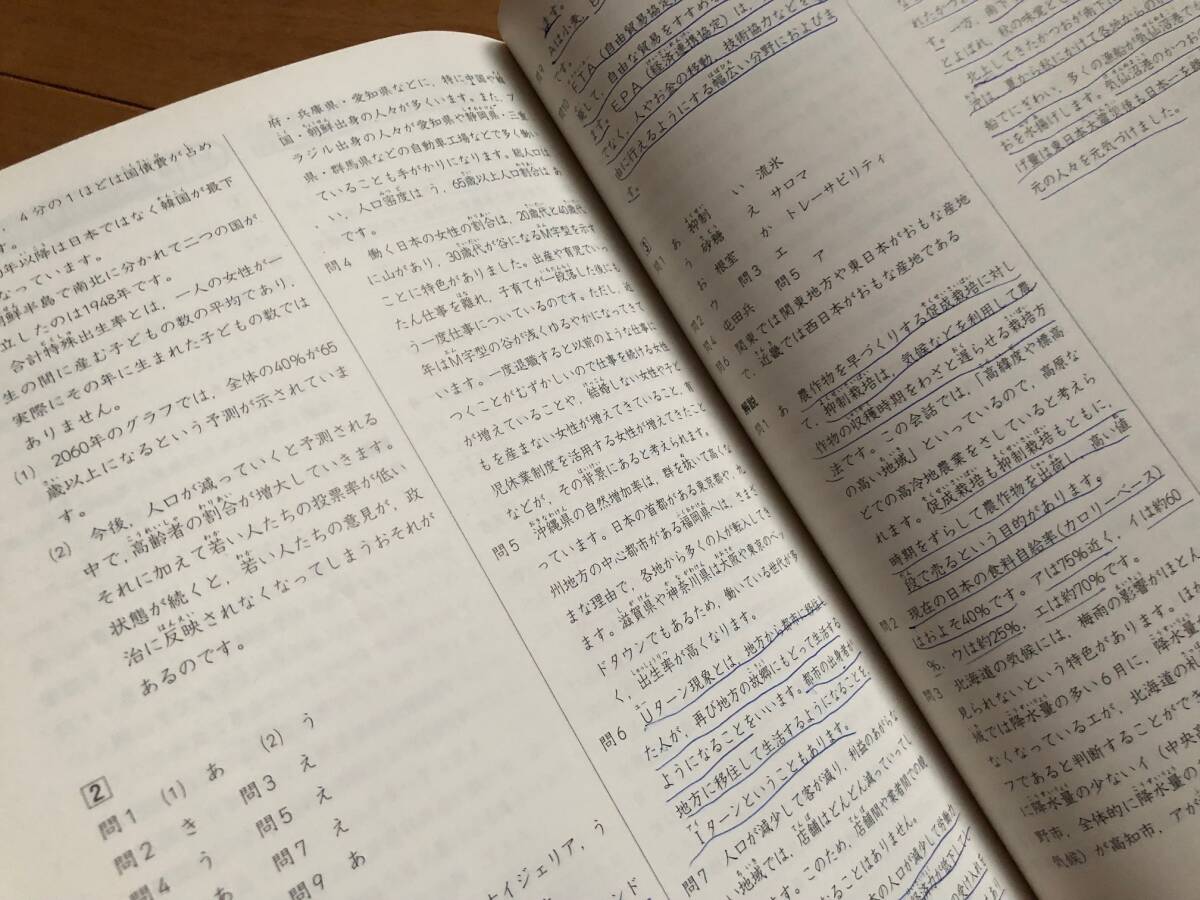 4分の1ほどは国債費が占め
す。
年以降は日本ではなく韓国が最下
なっています。
朝鮮半島で南北に分かれて二つの国が
立したのは1948年です。
合計特殊出生率とは、一人の女性が一
生の間に産む子どもの数の平均であり、
実際にその年に生まれた子どもの数では
ありません。
(1) 2060年のグラフでは、全体の40%が65
歳以上になるという予測が示されていま
す。
(2) 今後、人口が減っていくと予測される
中で、高齢者の割合が増大していきます。
それに加えて若い人たちの投票率が低い
状態が続くと、若い人たちの意見が、政
治に反映されなくなってしまうおそれが
あるのです。
2
問1 (1) あ (2) う
問2 き 問3 え
問4 う 問5 え
あ 問7 え
問9 あ
ナイジェリア,う
府・兵庫県・愛知県などに、特に中国や韓
国・朝鮮出身の人々が多くいます。また、ブ
ラジル出身の人々が愛知県や静岡県・三重
県・群馬県などの自動車工場などで多く働い
ていることも手がかりになります。総人口は
い、人口密度は う、65歳以上人口割合は あ
です。
問4 働く日本の女性の割合は、20歳代と40歳代
に山があり、30歳代が谷になるM字型を示す
ことに特色がありました。出産や育児でいっ
たん仕事を離れ、子育てが一段落した後にも
う一度仕事についているのです。ただし、近
年はM字型の谷が浅くゆるやかになってきて
います。一度退職すると以前のような仕事に
つくことがむずかしいので仕事を続ける女性
が増えていることや、結婚しない女性や子ど
もを産まない女性が増えてきていること、育
児休業制度を活用する女性が増えてきたこと
などが、その背景にあると考えられます。
問5 沖縄県の自然増加率は、群を抜いて高くな
っています。日本の首都がある東京都や、九
州地方の中心都市がある福岡県へは、さまざ
まな理由で、各地から多くの人が転入してき
ます。滋賀県や神奈川県は大阪や東京のベッ
ドタウンでもあるため、働いている世代が多
く、出生率が高くなります。
問6 Uターン現象とは、地方から都市に移住し
た人が、再び地方の故郷にもどって生活する
ようになることをいいます。都市の出身者が
地方に移住して生活するようになることを、
Iターンということもあります。
問7 人口が減少して客が減り、利益のあがらな
い地域では、店舗はどんどん減っていって
ます。このため、店舗間や業者間での競
なることはありません。
本の人口が減少して労働力
経済力が低下して
の受け入れを
ます。
Aは小麦、
です。
問9
問10 FTA(自由貿易協定
自由な貿易をすすめる
EPA(経済連携協定)は、
易して、人やお金の移動、技術協力などを
でなく、幅広い分野におよびま
ます。
由に行えるようにする
す。
3
問1 あ 抑制 い 流氷
う 砂糖 え サロマ
お 根室 か トレーサビリティ
問2 ウ 問3 エ
問4 屯田兵 問5 ア
問6 関東では関東地方や東日本がおもな産地
で、近畿では西日本がおもな産地である
解説
問1 あ 農作物を早づくりする促成栽培に対し
て、抑制栽培は、気候などを利用して農
作物の収穫時期をわざと遅らせる栽培方
法です。この会話では、「高緯度や標高
の高い地域」といっているので、高原な
どでの高冷地農業をさしていると考えら
れます。促成栽培も抑制栽培もともに、
時期をずらして農作物を出荷し、高い値
段で売るという目的があります。
問2 現在の日本の食料自給率(カロリーベース)
はおよそ40%です。アは75%近く、イは約60
%、ウは約25%、エは約70%です。
問3 北海道の気候には、梅雨の影響がほとん
見られないという特色があります。ほ
域では降水量の多い6月に、降水量
なくなっているエが、北海道の札
フであると判断することができ
に降水量の少ないイ(中央高
野市、全体的に降水量の
気候)が高知市、アが
れたかつお
す。一方、南下
とよばれ、秋の味覚とし
北上してきたかつおが南下
沖は、夏から秋にかけて各地からの
船でにぎわい、多くの漁船が気仙沼港で
おを水揚げします。気仙沼港のかつお
げ量は東日本大震災後も日本一を維
元の人々を元気づけました。